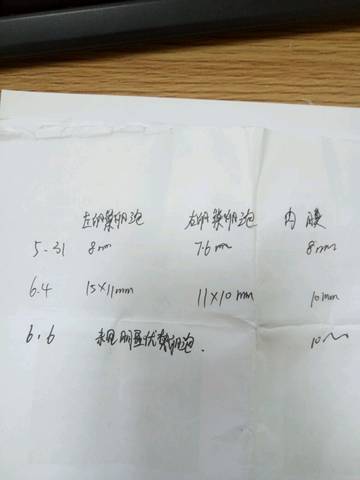 左卵巢卵泡 右卵巢卵泡 内膜
5.31 8mm 7.6mm 8mm
6.4 15×11mm 11×10mm 10mm
6.6 未见明显优势卵泡. 10mm